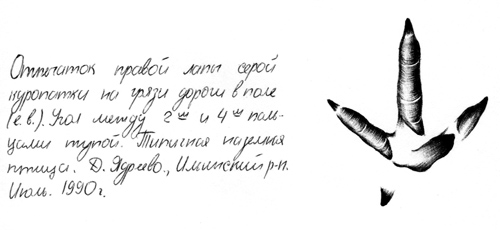 Отпечаток правой лапы серой
куропатки на грязи дороги в поле
(е.в.). Угол между 2ым и 4ым паль-
цами тупой. Типичная наземная
птица. Д. Ядреево., Истинский р-н.
Июль. 1990г.